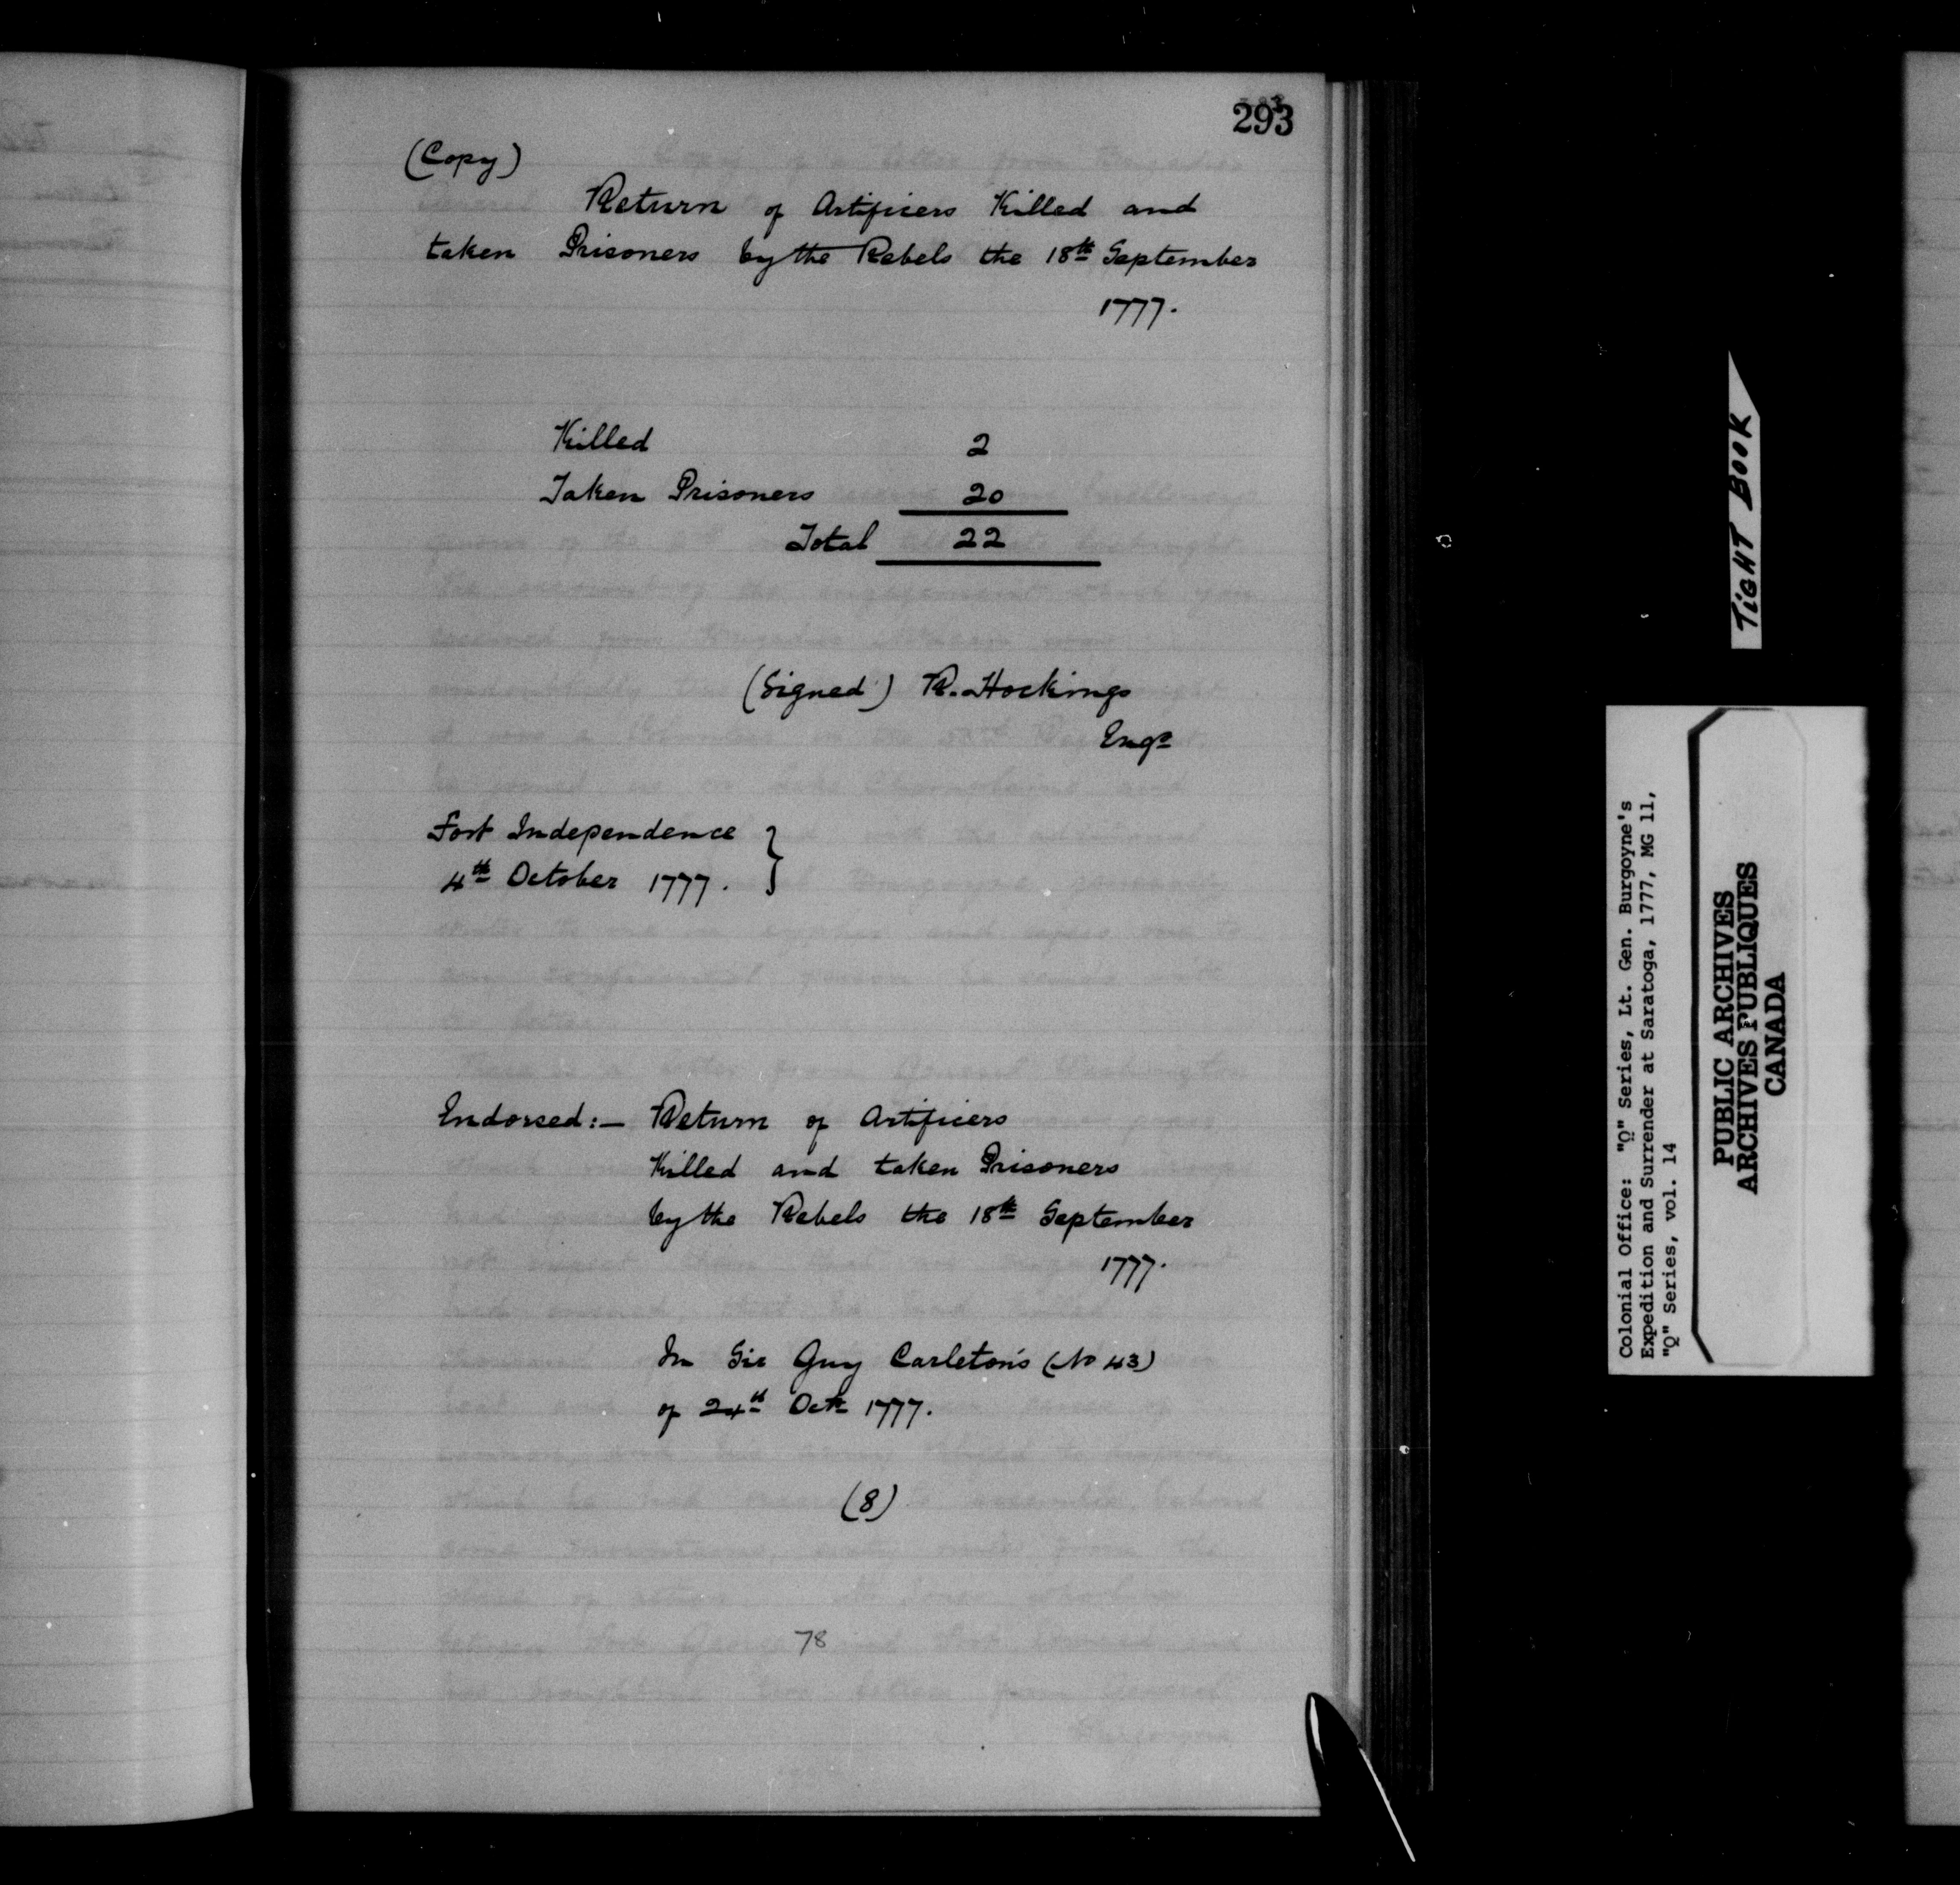 293
(Copy)
Return of Artificers Killed and
taken Prisoners by the Rebels the 18th September
1777.
Killed 2
Taken Prisoners 20
Total 22
(Signed) R. Hockings
Engr
Fort Independence
4th October 1777.
Endorsed:— Return of Artificers
Killed and taken Prisoners
by the Rebels the 18th September
1777.
In Sir Guy Carleton's (No 43)
of 24th Octr 1777.
(8)
78
TiGHT BOOK
Colonial Office: "Q" Series, Lt. Gen. Burgoyne's
Expedition and Surrender at Saratoga, 1777, MG 11,
"Q" Series, vol. 14
PUBLIC ARCHIVES
ARCHIVES PUBLIQUES
CANADA